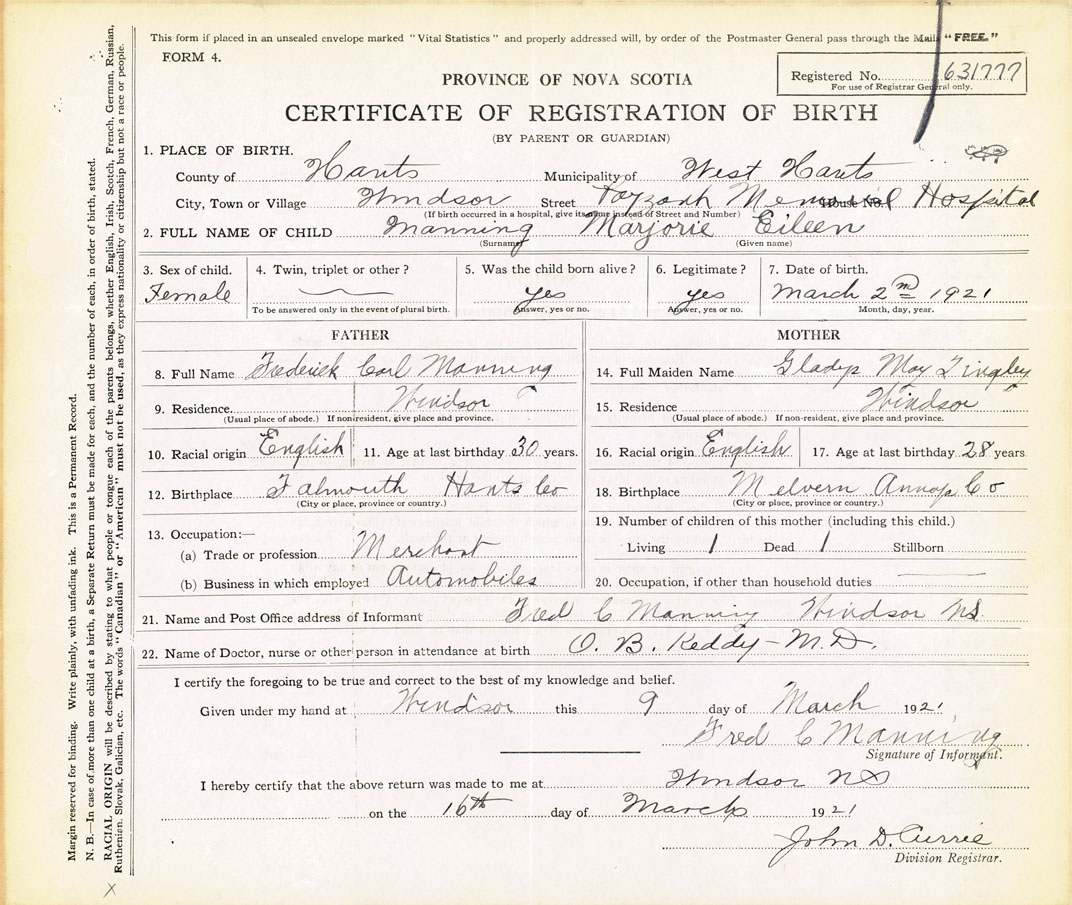 This form if placed in an unsealed envelope marked "Vital Statistics" and properly addressed will, by order of the Postmaster General pass through the Mails "FREE."
FORM 4.
PROVINCE OF NOVA SCOTIA
Registered No. 631777
For use of Registrar General only.
CERTIFICATE OF REGISTRATION OF BIRTH
(BY PARENT OR GUARDIAN)
1. PLACE OF BIRTH.
County of Hants Municipality of West Hants
City, Town or Village Windsor Street Payzant Memorial House No. Hospital
(If birth occurred in a hospital, give its name instead of Street and Number)
2. FULL NAME OF CHILD Manning Marjorie Eileen
(Surname) (Given name)
3. Sex of child. 4. Twin, triplet or other? 5. Was the child born alive? 6. Legitimate? 7. Date of birth.
Female yes yes March 2nd 1921
To be answered only in the event of plural birth. Answer, yes or no. Answer, yes or no. Month, day, year.
FATHER
8. Full Name Frederick Carl Manning
9. Residence Windsor
(Usual place of abode.) If non-resident, give place and province.
10. Racial origin English 11. Age at last birthday 30 years.
12. Birthplace Falmouth Hants Co
(City or place, province or country.)
13. Occupation:—
(a) Trade or profession Merchant
(b) Business in which employed Automobiles
MOTHER
14. Full Maiden Name Gladys May Tingley
15. Residence Windsor
(Usual place of abode.) If non-resident, give place and province.
16. Racial origin English 17. Age at last birthday 28 years
18. Birthplace Melvern Annap Co
(City or place, province or country.)
19. Number of children of this mother (including this child.)
Living 1 Dead 1 Stillborn
20. Occupation, if other than household duties
21. Name and Post Office address of Informant Fred C Manning Windsor NS.
22. Name of Doctor, nurse or other person in attendance at birth O. B. Keddy - M.D.
I certify the foregoing to be true and correct to the best of my knowledge and belief.
Given under my hand at Windsor this 9 day of March 1921
Fred C Manning
Signature of Informant.
I hereby certify that the above return was made to me at Windsor NS
on the 16th day of March 1921
John D. Currie
Division Registrar.
Margin reserved for binding. Write plainly, with unfading ink. This is a Permanent Record.
N. B.—In case of more than one child at a birth, a Separate Return must be made for each, and the number of each, in order of birth, stated.
RACIAL ORIGIN will be described by stating to what people or tongue each of the parents belongs, whether English, Irish, Scotch, French, German, Russian,
Ruthenian, Slovak, Galician, etc. The words "Canadian" or "American" must not be used, as they express nationality or citizenship but not a race or people.
X